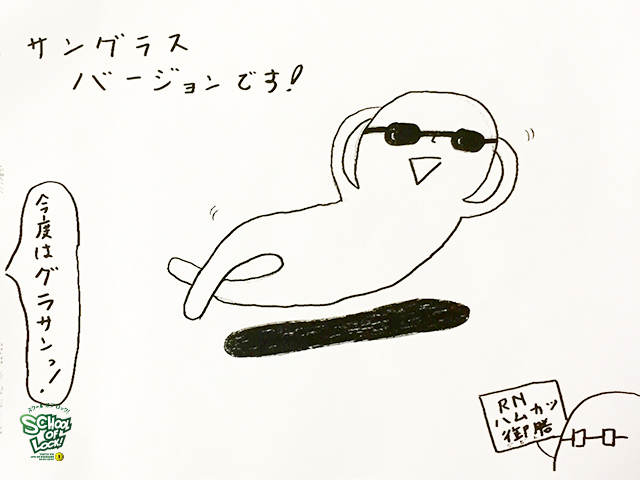 サングラス
バージョンです!
今度はグラサンっ!
スクールオブロック!
SCHOOL
OF
LOCK!
RN
ハムカツ
御膳